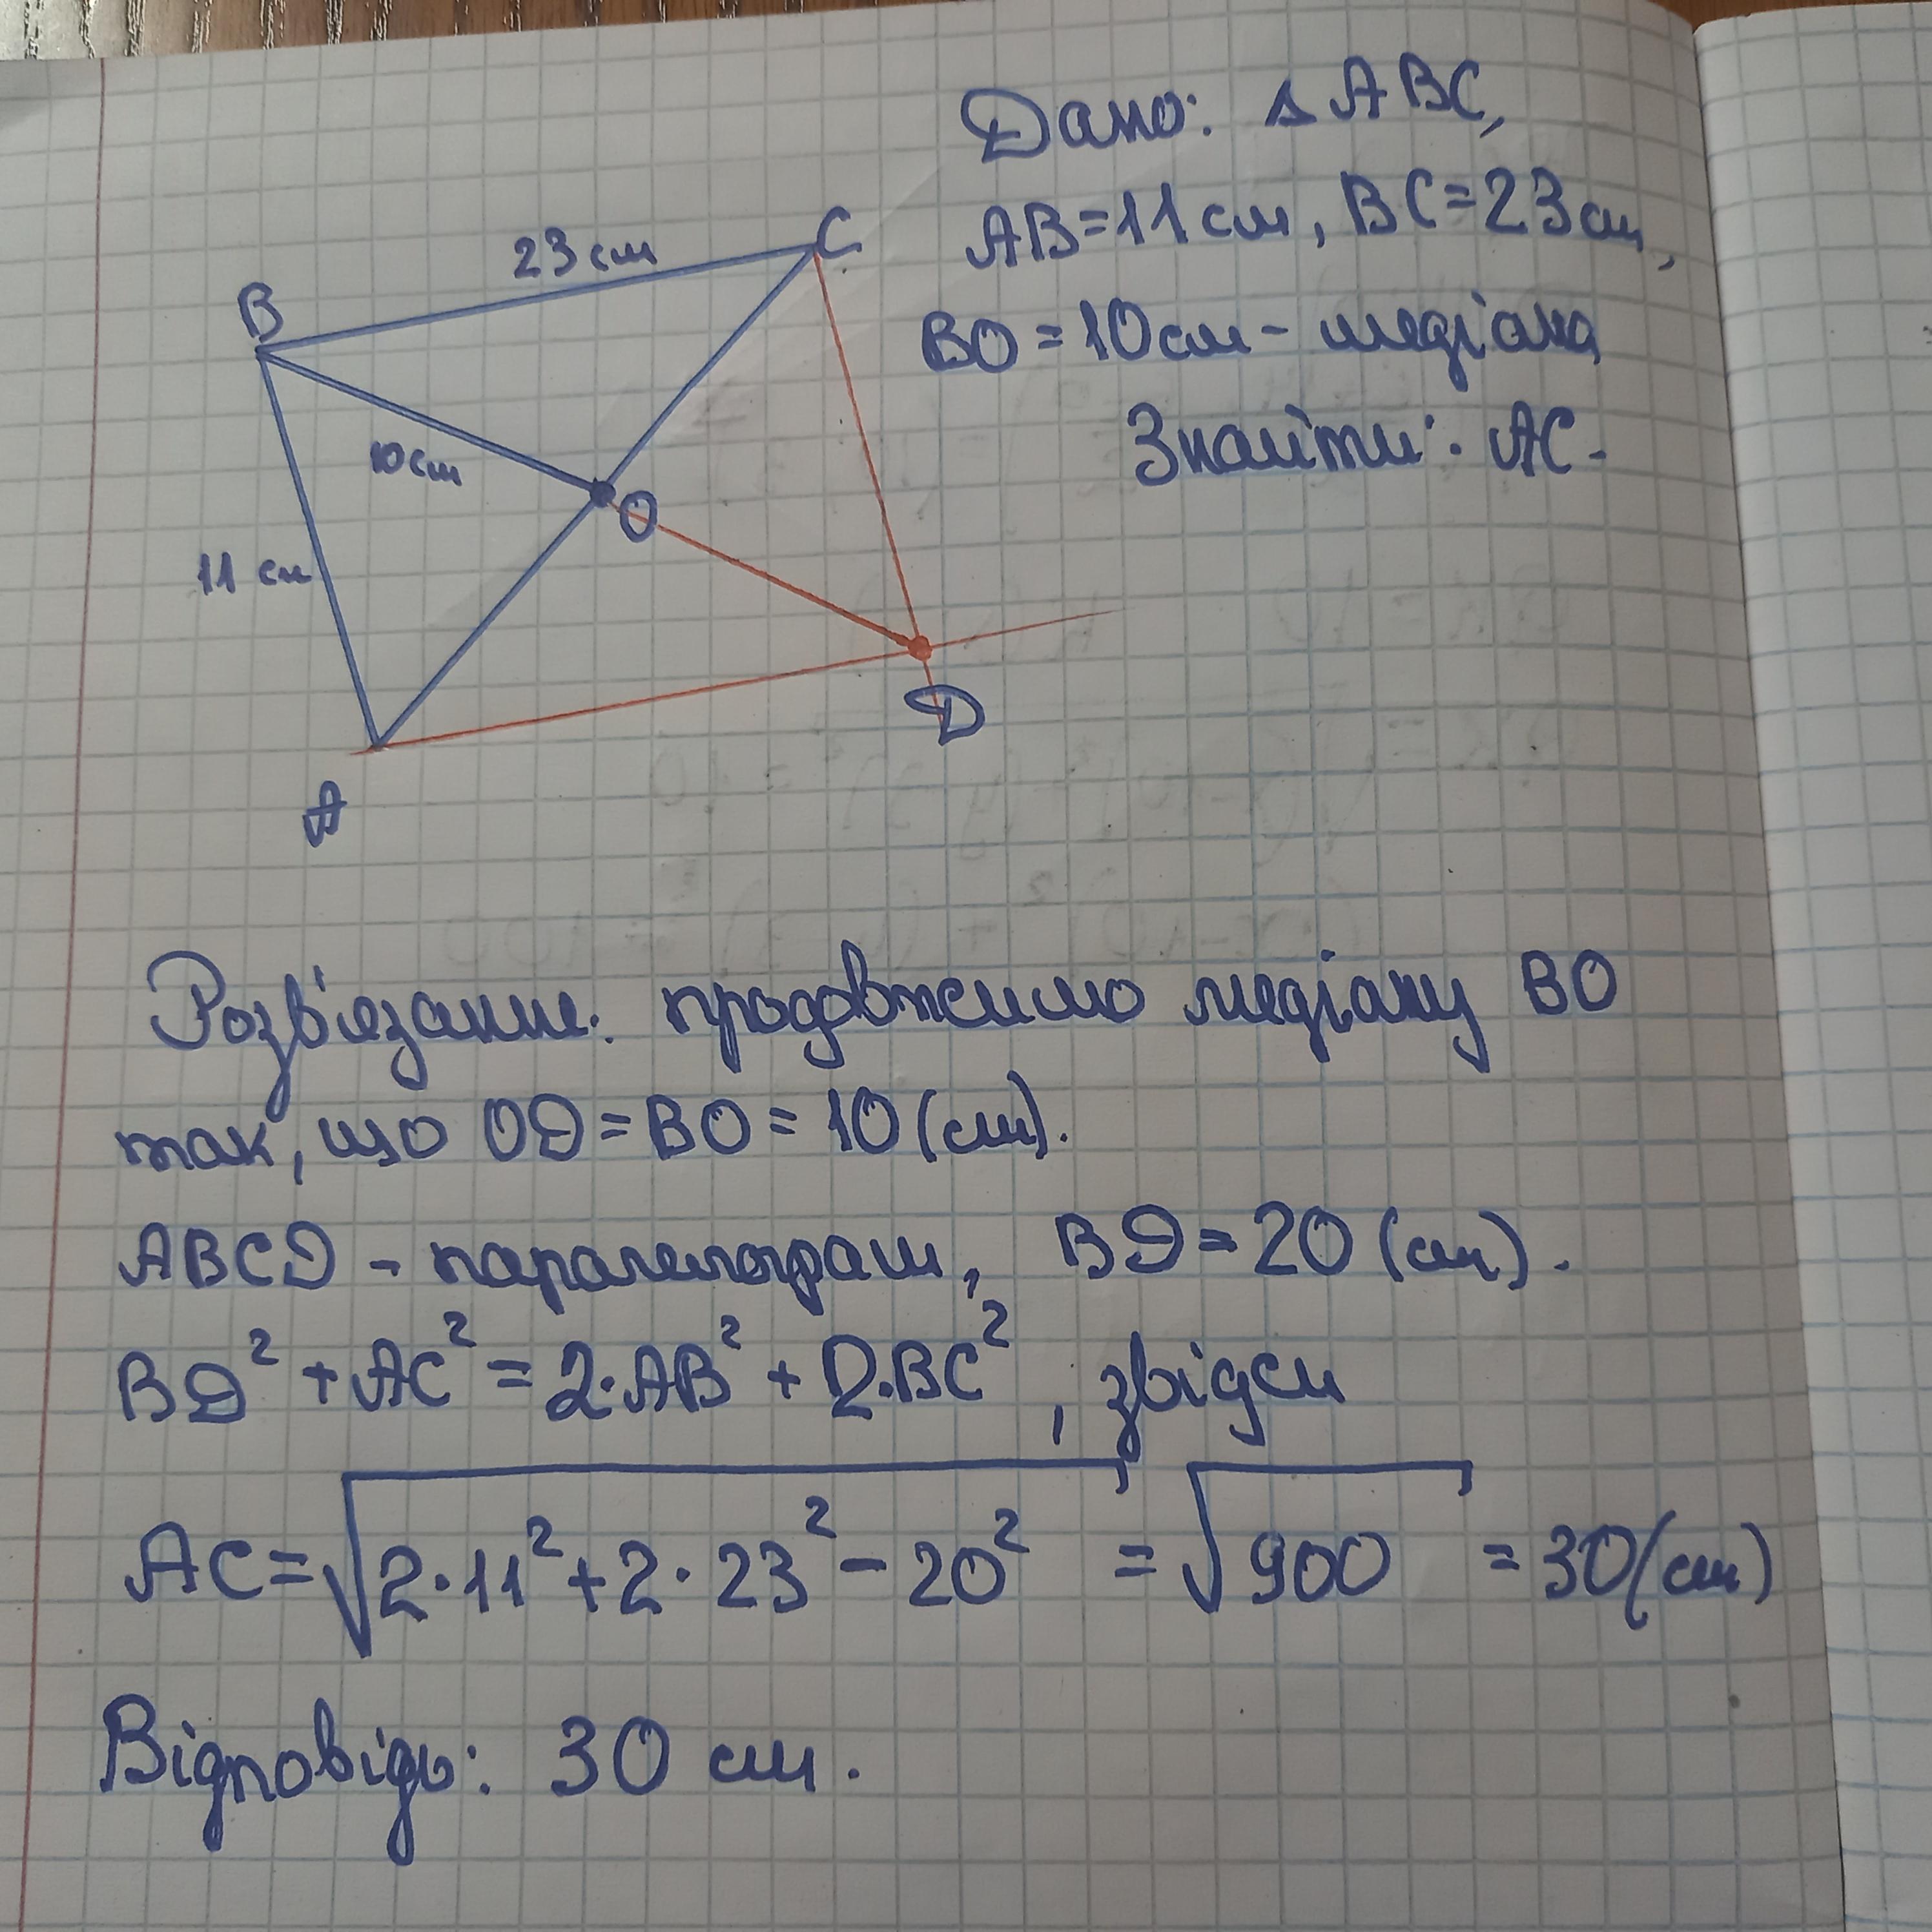 Дано: △ ABC,
AB=11см, BC=23см,
BO=10см - медіана
Знайти: AC.
23 см
B
C
10см
O
11 см
D
A
Розв'язання: продовжимо медіану BO
так, що OD=BO=10(см).
ABCD - паралелограм, BD=20(см).
BD²+AC²=2·AB²+2·BC², звідси
AC=√2·11²+2·23²-20² = √900 = 30(см)
Відповідь: 30 см.